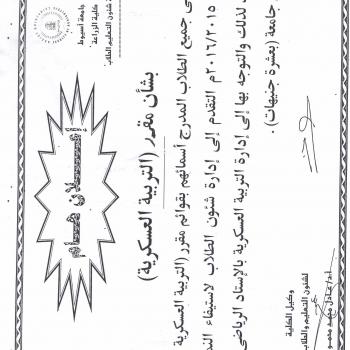 جامعة أسيوط
كلية الزراعة
شئون التعليم والطلاب
إعــــلان هــــام
بشأن مقرر (التربية العسكرية)
جميع الطلاب المدرج أسمائهم بقوائم مقرر (التربية العسكرية
٢٠١٦/٢٠١٥م التقدم إلى إدارة شئون الطلاب لاستيفاء
لذلك والتوجه بها إلى إدارة التربية العسكرية بالإستاد الرياضي
جامعة (بعشرة جنيهات).
وكيل الكلية
لشئون التعليم والطلاب
أ.د/ عادل محمد